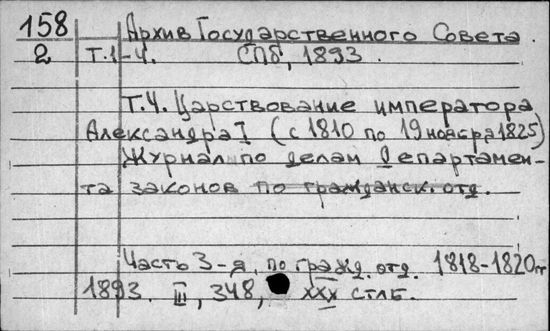 158 Архив Государственного Совета.
2 Т.1-4. СПб, 1893.
Т.4. Царствование императора
Александра I (с 1810 по 19 ноября 1825)
Журнал по делам Департамен-
та законов по гражданск. отд.
Часть 3-я, по гражд. отд. 1818-1820 гг
1893. III, 348, XXX стлб.